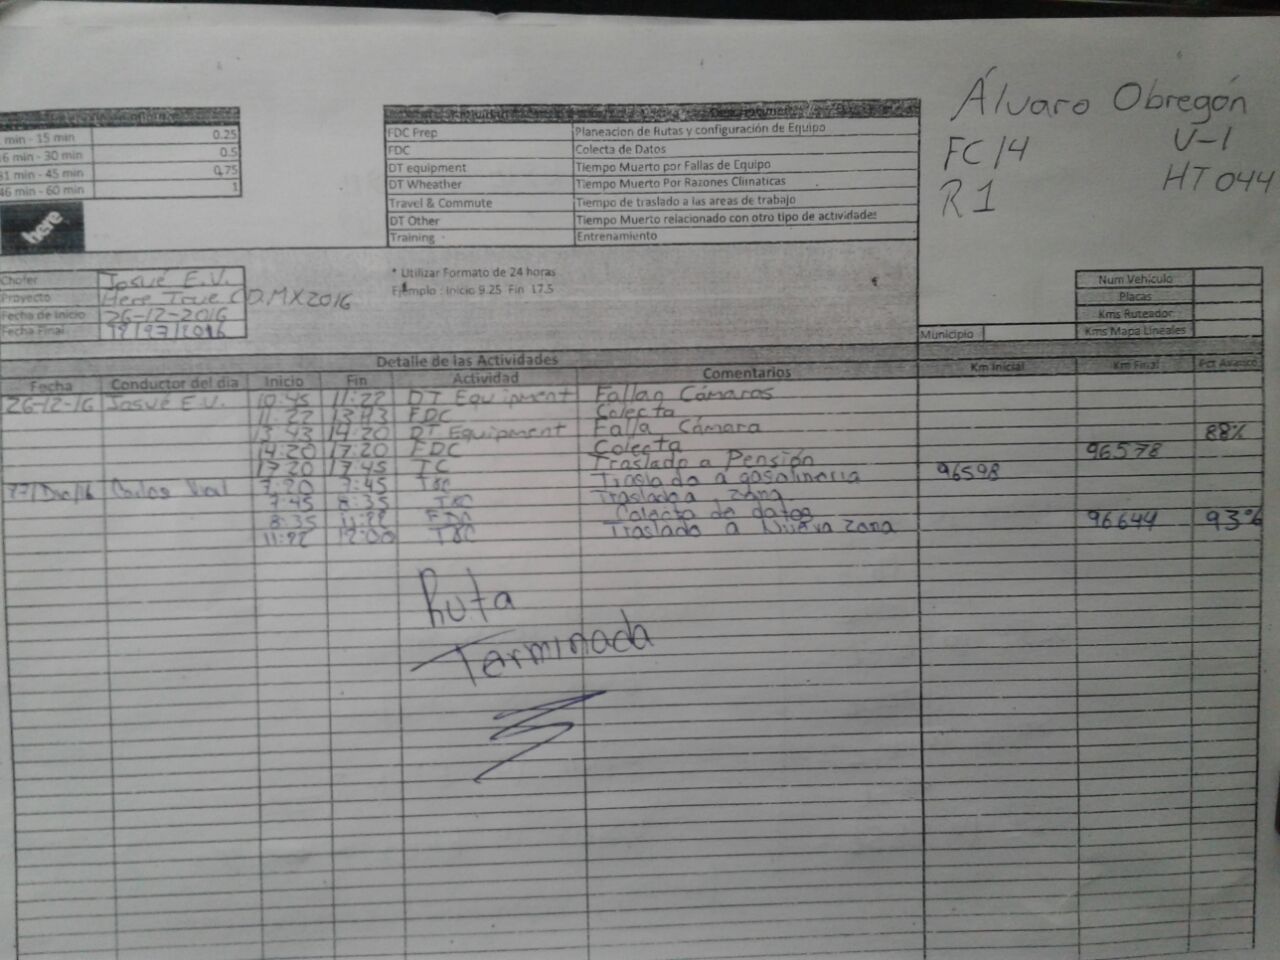 Álvaro Obregón
FC14 V-1
R1 HT044
min - 15 min 0.25
16 min - 30 min 0.5
31 min - 45 min 0.75
46 min - 60 min 1
here
FDC Prep Planeacion de Rutas y configuración de Equipo
FDC Colecta de Datos
DT equipment Tiempo Muerto por Fallas de Equipo
DT Wheather Tiempo Muerto Por Razones Climaticas
Travel & Commute Tiempo de traslado a las areas de trabajo
DT Other Tiempo Muerto relacionado con otro tipo de actividades
Training - Entrenamiento
* Utilizar Formato de 24 horas
Ejemplo : Inicio 9.25 Fin 17.5
Chofer Josué E.V.
Proyecto Here True CD.MX2016
Fecha de Inicio 26-12-2016
Fecha Final
Num Vehículo
Placas
Kms Ruteador
Kms Mapa Lineales
Municipio
Detalle de las Actividades
Fecha Conductor del dia Inicio Fin Actividad Comentarios Km Inicial Km Final Pct Avance
26-12-16 Josué E.V. 10:45 11:22 DT Equipment Fallan Cámaras
11:22 13:43 FDC Colecta
13:43 14:20 DT Equipment Falla Cámara 88%
14:20 17:20 FDC Colecta 96578
17:20 17:45 TC Traslado a Pensión
27/Dic/16 7:20 7:45 T&C Traslado a gasolineria 96598
7:45 8:35 T&C Traslado a zona
8:35 11:22 FDC Colecta de datos 96644 93%
11:22 12:00 T&C Traslado a Nueva zona
Ruta
Terminada